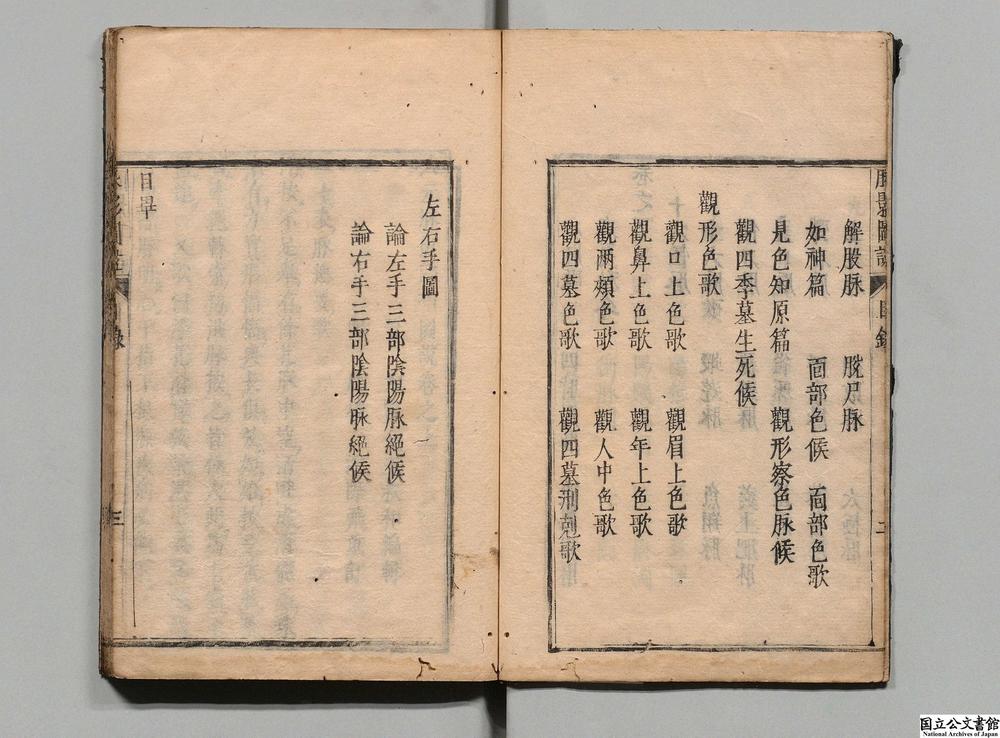 脈影圖說 目錄 二
解股脉 脫足脉
如神篇 面部色候 面部色歌
見色知原篇 觀形察色脉候
觀四季墓生死候
觀形色歌
觀口上色歌 觀眉上色歌
觀鼻上色歌 觀年上色歌
觀兩頰色歌 觀人中色歌
觀四墓色歌 觀四墓刑剋歌
左右手圖
論左手三部陰陽脉絕候
論右手三部陰陽脉絕候
目畢
目錄 三
国立公文書館
National Archives of Japan